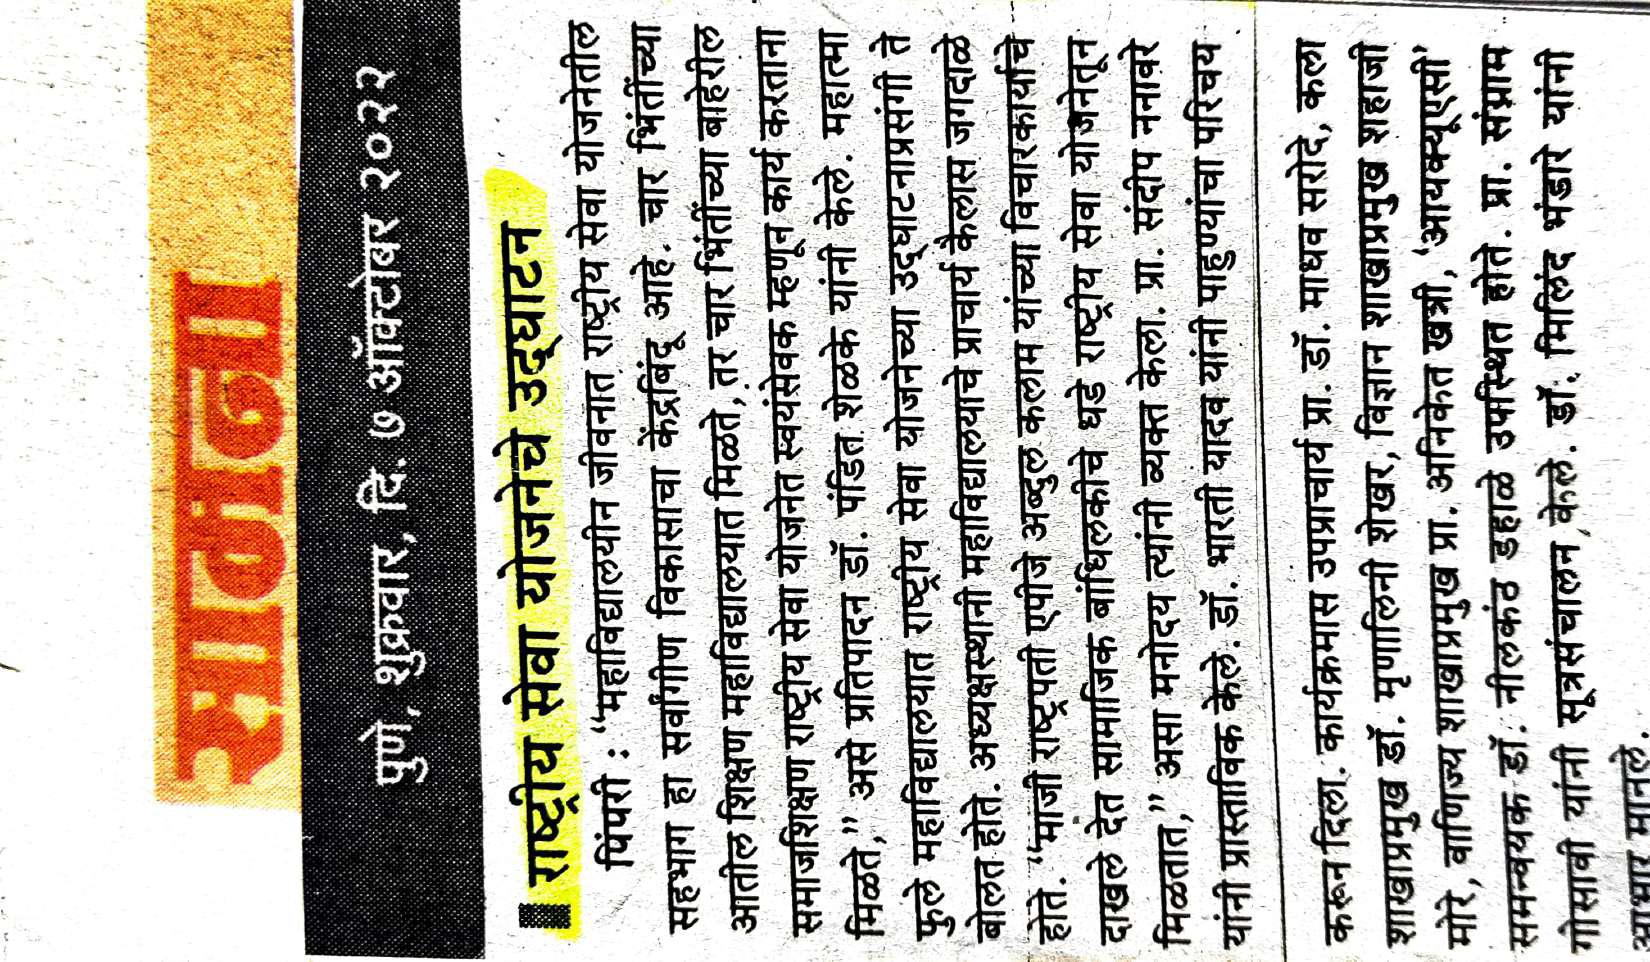 सकाळ
पुणे, शुक्रवार, दि. ७ ऑक्टोबर २०२२
राष्ट्रीय सेवा योजनेचे उद्‌घाटन
पिंपरी : ‘‘महाविद्यालयीन जीवनात राष्ट्रीय सेवा योजनेतील
सहभाग हा सर्वांगीण विकासाचा केंद्रबिंदू आहे. चार भिंतींच्या
आतील शिक्षण महाविद्यालयात मिळते, तर चार भिंतींच्या बाहेरील
समाजशिक्षण राष्ट्रीय सेवा योजनेत स्वयंसेवक म्हणून कार्य करताना
मिळते,’’ असे प्रतिपादन डॉ. पंडित शेळके यांनी केले. महात्मा
फुले महाविद्यालयात राष्ट्रीय सेवा योजनेच्या उद्‌घाटनाप्रसंगी ते
बोलत होते. अध्यक्षस्थानी महाविद्यालयाचे प्राचार्य कैलास जगदाळे
होते. ‘‘माजी राष्ट्रपती एपीजे अब्दुल कलाम यांच्या विचारकार्याचे
दाखले देत सामाजिक बांधिलकीचे धडे राष्ट्रीय सेवा योजनेतून
मिळतात,’’ असा मनोदय त्यांनी व्यक्त केला. प्रा. संदीप ननावरे
यांनी प्रास्ताविक केले. डॉ. भारती यादव यांनी पाहुण्यांचा परिचय
करून दिला. कार्यक्रमास उपप्राचार्य प्रा. डॉ. माधव सरोदे, कला
शाखाप्रमुख डॉ. मृणालिनी शेखर, विज्ञान शाखाप्रमुख शहाजी
मोरे, वाणिज्य शाखाप्रमुख प्रा. अनिकेत खत्री, ‘आयक्यूएसी’
समन्वयक डॉ. नीलकंठ डहाळे उपस्थित होते. प्रा. संग्राम
गोसावी यांनी सूत्रसंचालन केले. डॉ. मिलिंद भंडारे यांनी
आभार मानले.